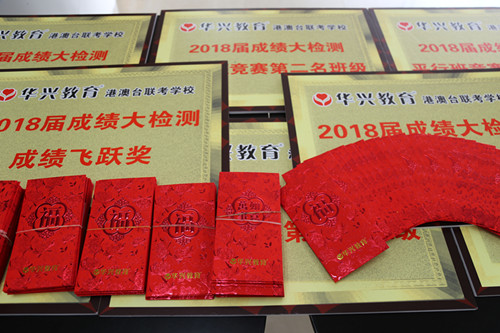 2018届成绩大检测
华兴教育 港澳台联考学校
2018届成绩大检测
竞赛第二名班级
华兴教育 港澳台联考学校
2018届成绩大检测
平行班竞赛
华兴教育 港澳台联考学校
2018届成绩大检测
成绩飞跃奖
华兴教育 港
华兴教育 港澳台联考学校
2018届成绩大检测
第
级
华兴教育
华兴教育
华兴教育
华兴教育
华兴教育